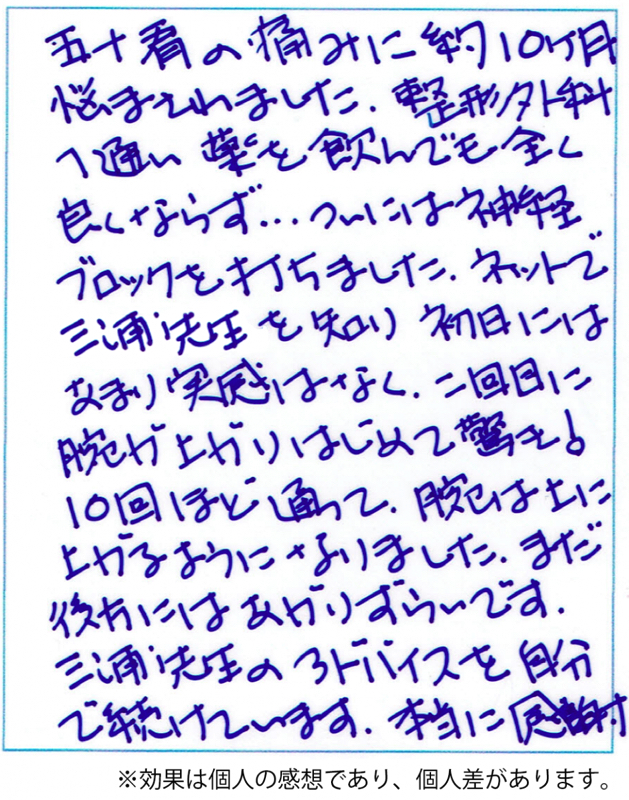 五十肩の痛みに約10ヶ月
悩まされました. 整形外科
へ通い 薬を飲んでも全く
良くならず…ついには神経
ブロックを打ちました. ネットで
三浦先生を知り 初日には
あまり実感はなく. 二回目に
腕が上がりはじめて驚き!
10回ほど通って. 腕は上に
上がるようになりました. まだ
後方にはあがりずらいです.
三浦先生のアドバイスを自分
で続けています. 本当に感謝
※効果は個人の感想であり、個人差があります。